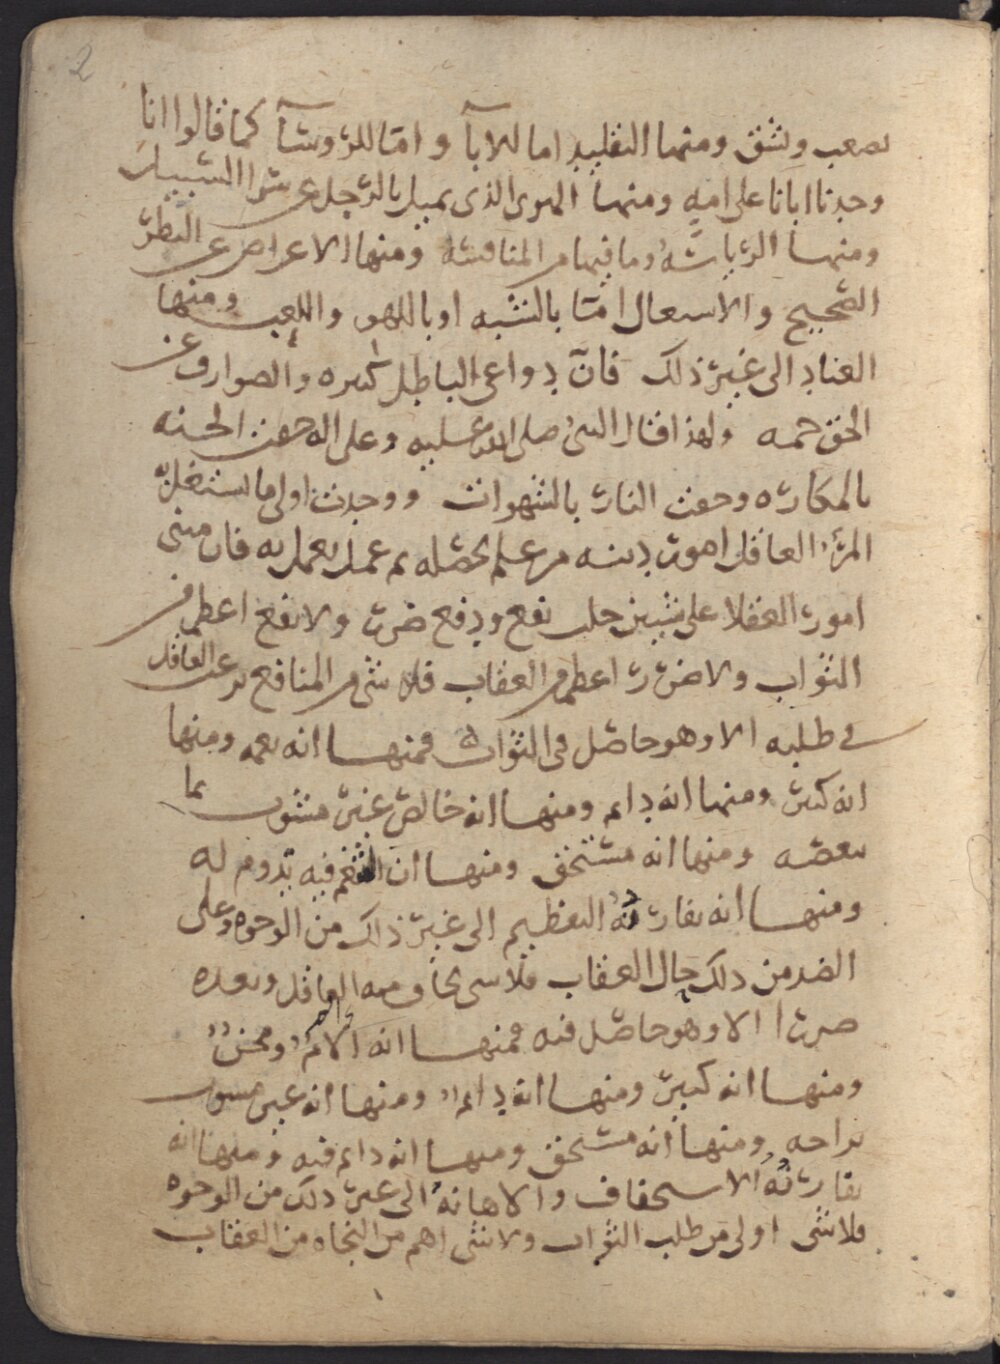 2
يصعب ويشق ومنها التقليد اما للابآ و امّا للرّوسآ كما قالوا انا
وجدنا اباناعلى امه ومنها الهوى الذي يميل بالرّجل عن سوا السبيل
ومنها الرّياسة وما فيها من المنافسة ومنها الاعراض عن النظر
الصحيح والاسعال امّا بالشبه او باللهو واللعب ومنها
العناد الى غير ذلك فانّ دواعي الباطل كثيره والصوارف عن
الحق جمه ولهذا قال النبي صلى الله عليه وعلى اله حفت الجنه
بالمكاره وحفت النار بالشهوات ووجدت اولى ما يشتغل
المرء العاقل امور دينه من علم يحصّله ثم عمل يعمل به فان مبنى
امور العقلا على شيين جلب نفع ودفع ضرر ولا نفع اعظم من
الثواب ولا ضرر اعظم من العقاب فلا شي من المنافع يرغب العاقل
في طلبه الا وهو حاصل في الثواب فمنها انه نعمه ومنها
انه كثير ومنها انه دايم ومنها انه خالص غير مشوب بما
ينغصه ومنها انه مستحق ومنها ان التنعم فيه يدوم له
ومنها انه يقارنه التعظيم الى غير ذلك من الوجوه وعلى
الضد من ذلك حال العقاب فلا شي يخاف منه العاقل ويعده
ضررا الا وهو حاصل فيه فمنها انه الام والم ومحن
ومنها انه كثير ومنها انه دايم ومنها انه غير مشوب
براحه ومنها انه مستحق ومنها انه دايم فيه ومنها انه
يقارنه الاستخفاف والاهانه الى غير ذلك من الوجوه
فلا شي اولى من طلب الثواب ولا شي اهم من النجاه من العقاب